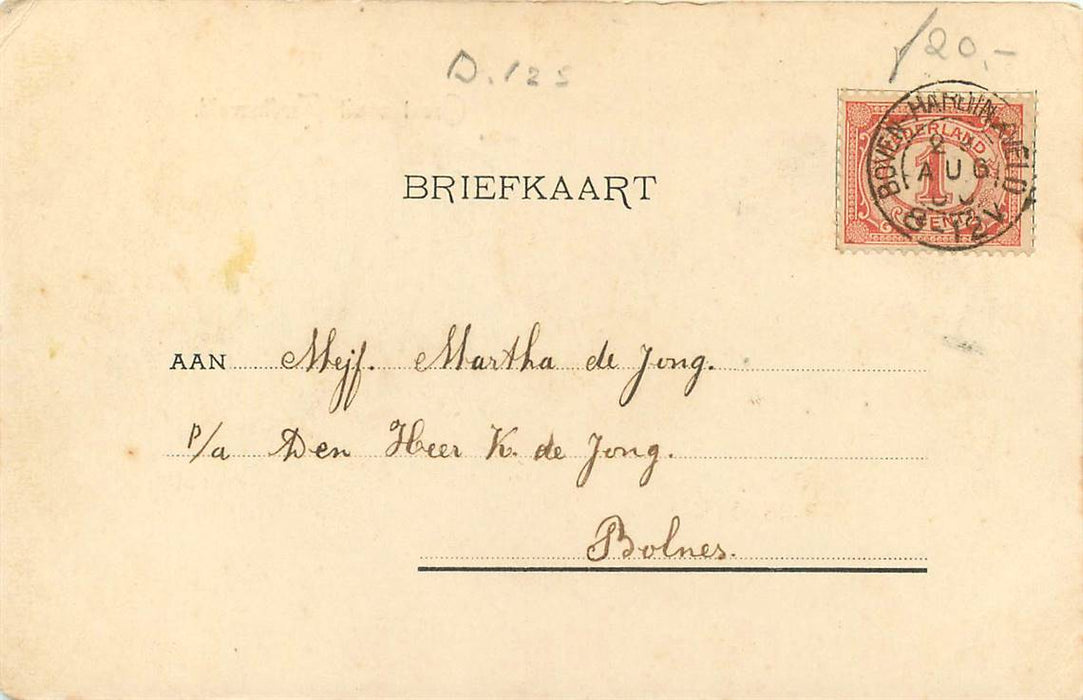 D. 125
ƒ20,-
BOVEN-HARDINXVELD
2
AUG
8-12V
NEDERLAND
1
CENT
BRIEFKAART
AAN Mejf. Martha de Jong.
p/a Den Heer K. de Jong.
Bolnes.